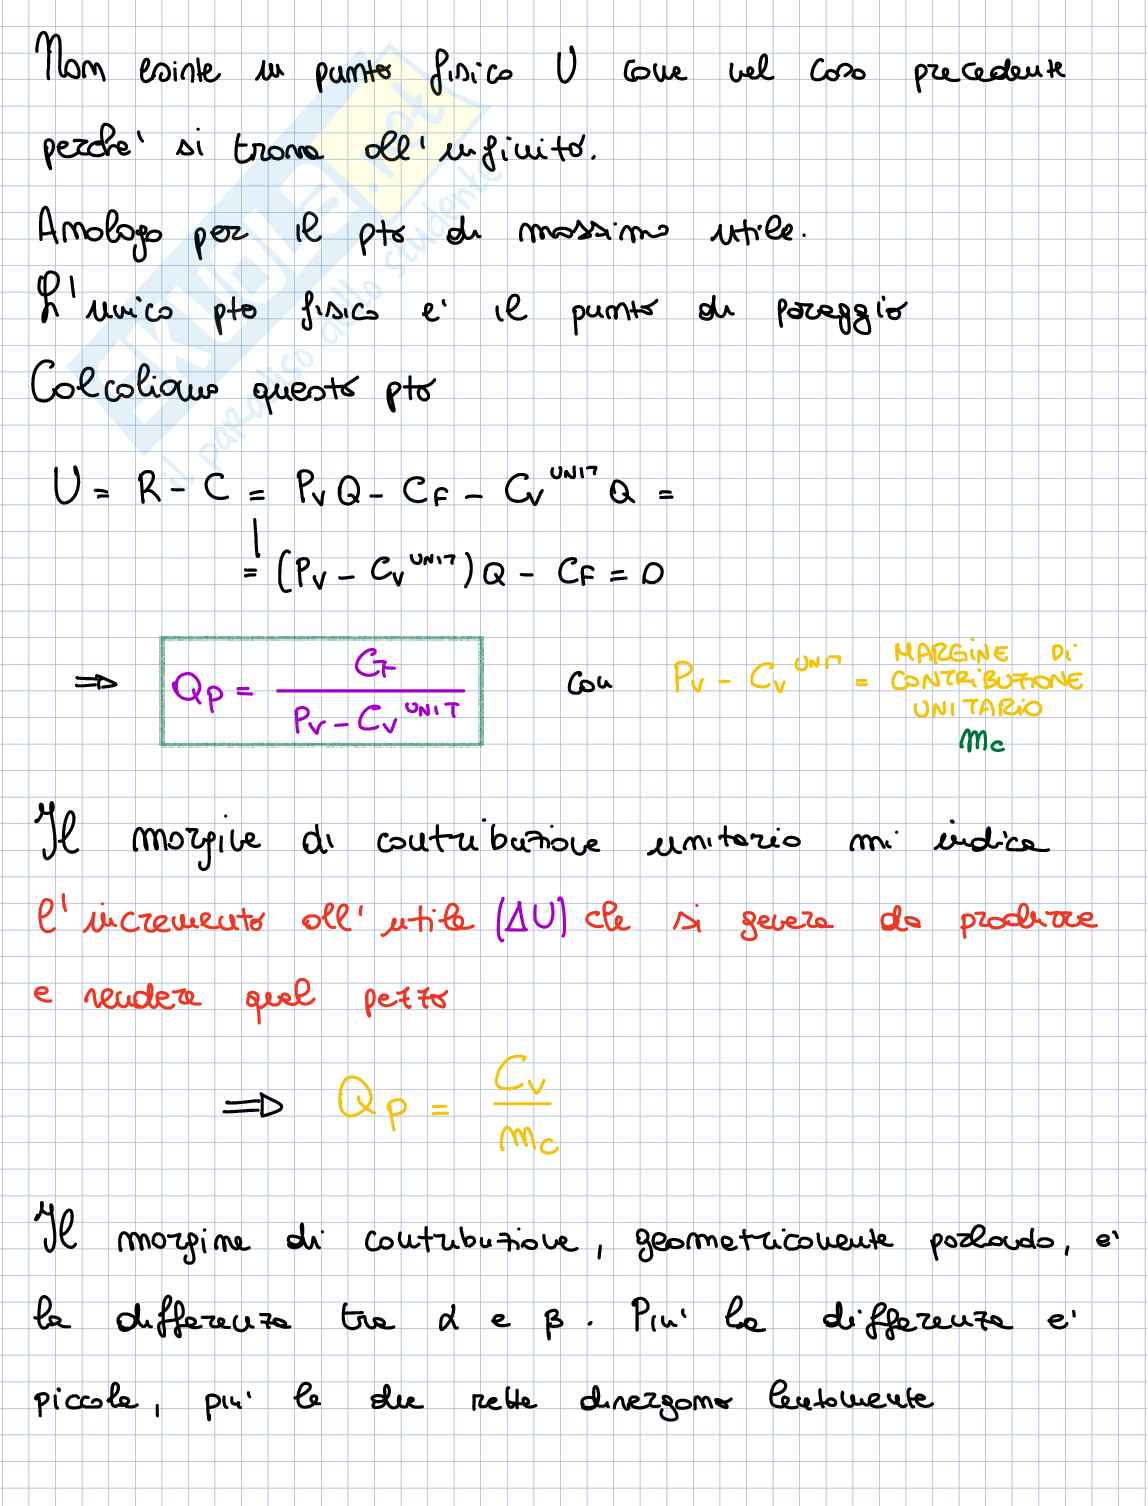 Non esiste un punto fisico U come nel caso precedente
perche' si trova all' infinito.
Analogo per il pto di massimo utile.
L'unico pto fisico e' il punto di pareggio
Calcoliamo questo pto
U = R - C = Pv Q - CF - Cv^UNIT Q =
= (Pv - Cv^UNIT) Q - CF = 0
⇒ Qp = CF / (Pv - Cv^UNIT) con Pv - Cv^UNIT = MARGINE Di CONTRiBUZIONE UNITARIO
mc
Il margine di contribuzione unitario mi indica
l'incremento all' utile (ΔU) che si genera da produrre
e vendere quel pezzo
⇒ Qp = Cv / mc
Il margine di contribuzione, geometricamente parlando, e'
la differenza tra α e β. Piu' la differenza e'
piccola, piu' le due rette divergono lentamente
SKUOLA.net
il paradiso dello studente